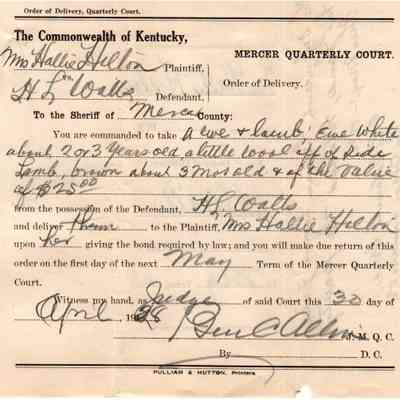 Order of Delivery, Quarterly Court.
The Commonwealth of Kentucky,
MERCER QUARTERLY COURT.
Mrs Hallie Hilton Plaintiff,
vs
H L Watts Defendant,
Order of Delivery.
To the Sheriff of Mercer County:
You are commanded to take A ewe & lamb, Ewe White
about 2 or 3 Years old a little wool off of Side
Lamb, brown about 3 Mos old & of the Value
of $25.00
from the possession of the Defendant, H L Watts
and deliver them to the Plaintiff, Mrs Hallie Hilton
upon her giving the bond required by law; and you will make due return of this
order on the first day of the next May Term of the Mercer Quarterly
Court.
Witness my hand, as Judge of said Court this 30 day of
April 19
Ben C Allin J. M. Q. C.
By D. C.
PULLIAM & HUTTON, Printers